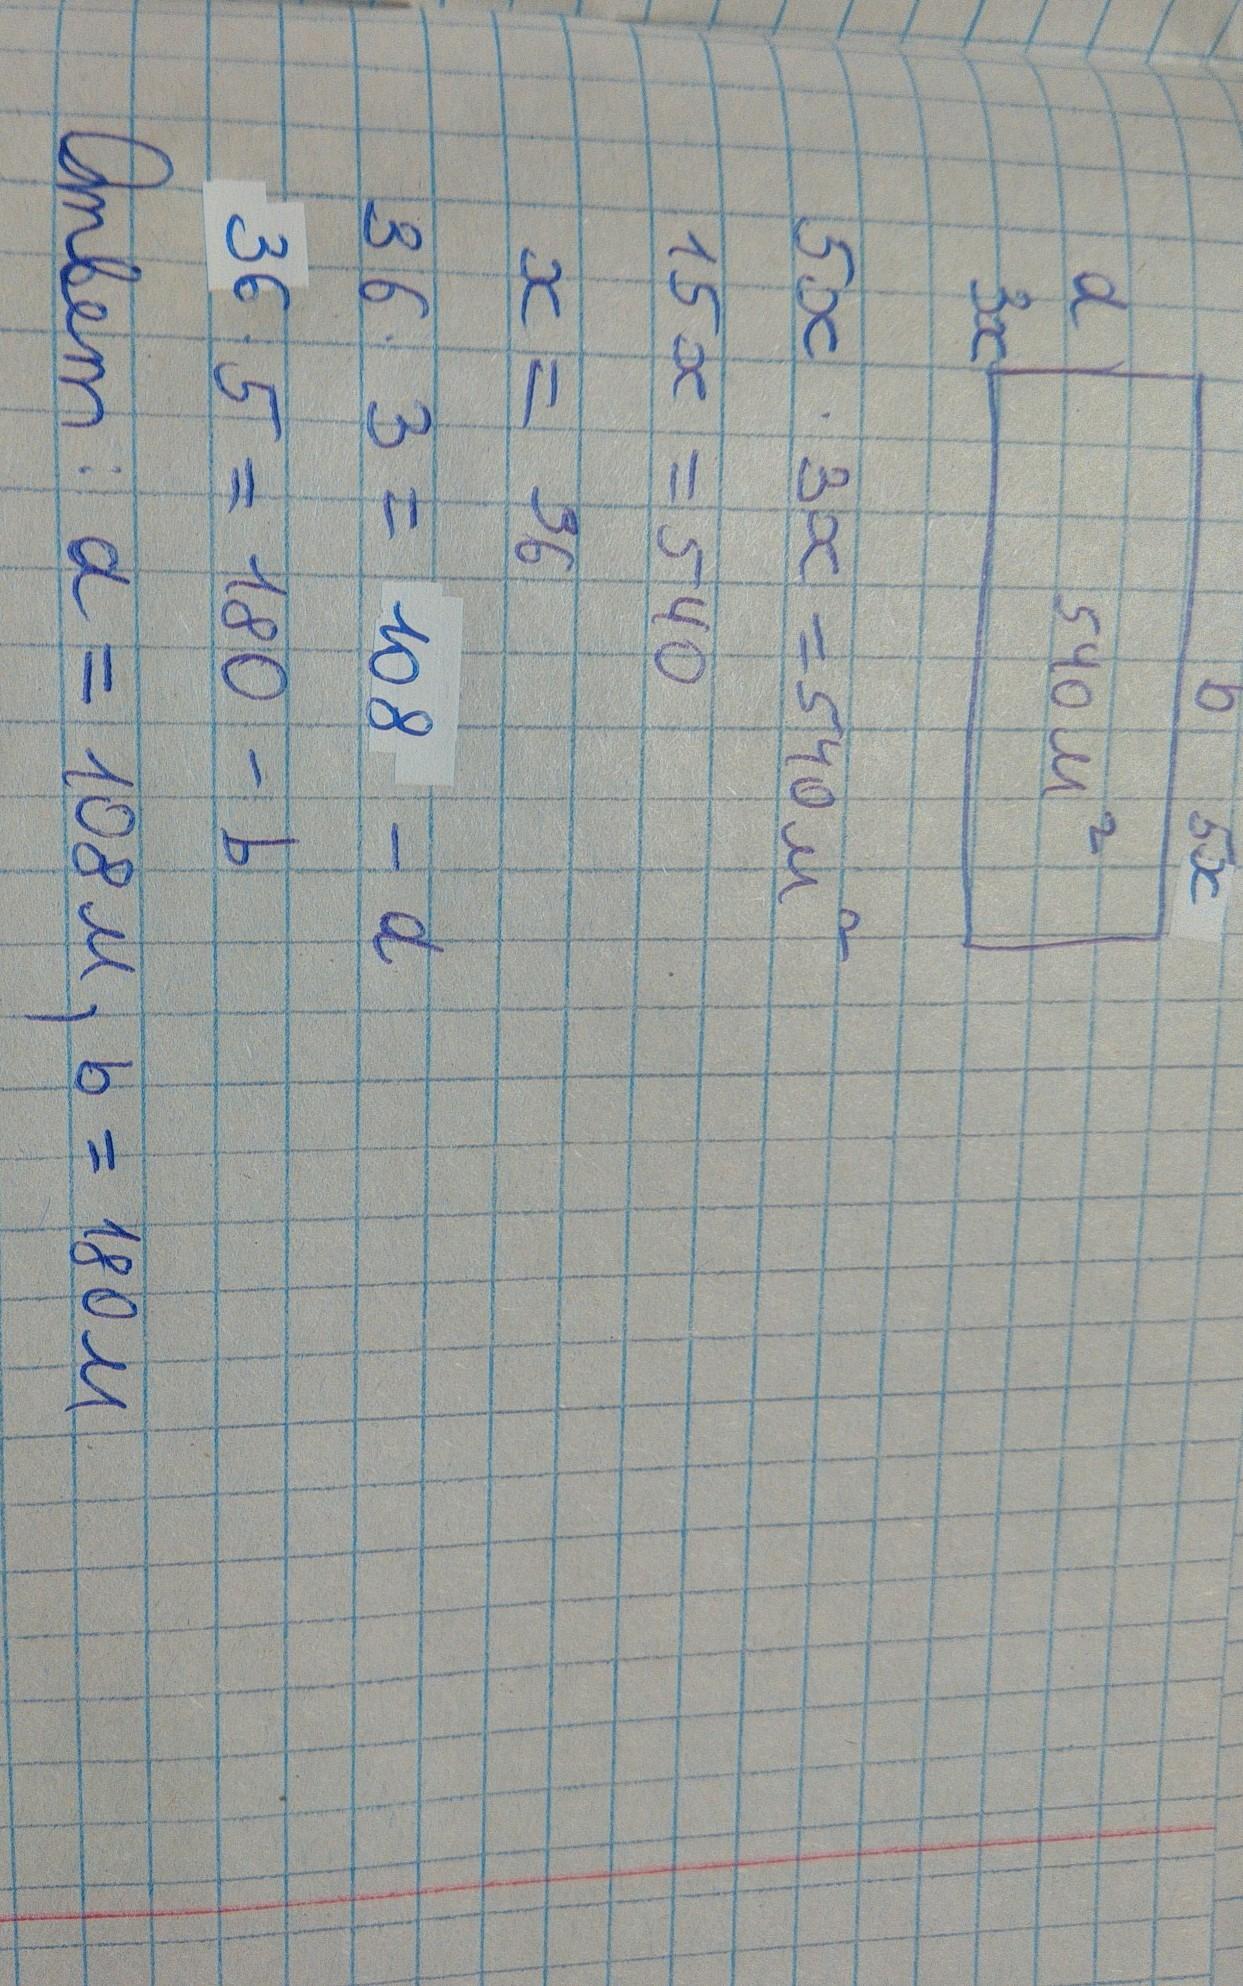 b 5x
a
3x
540 м²
5x · 3x = 540 м²
15x = 540
x = 36
36 · 3 = 108 - a
36 · 5 = 180 - b
Ответ: a = 108 м, b = 180 м